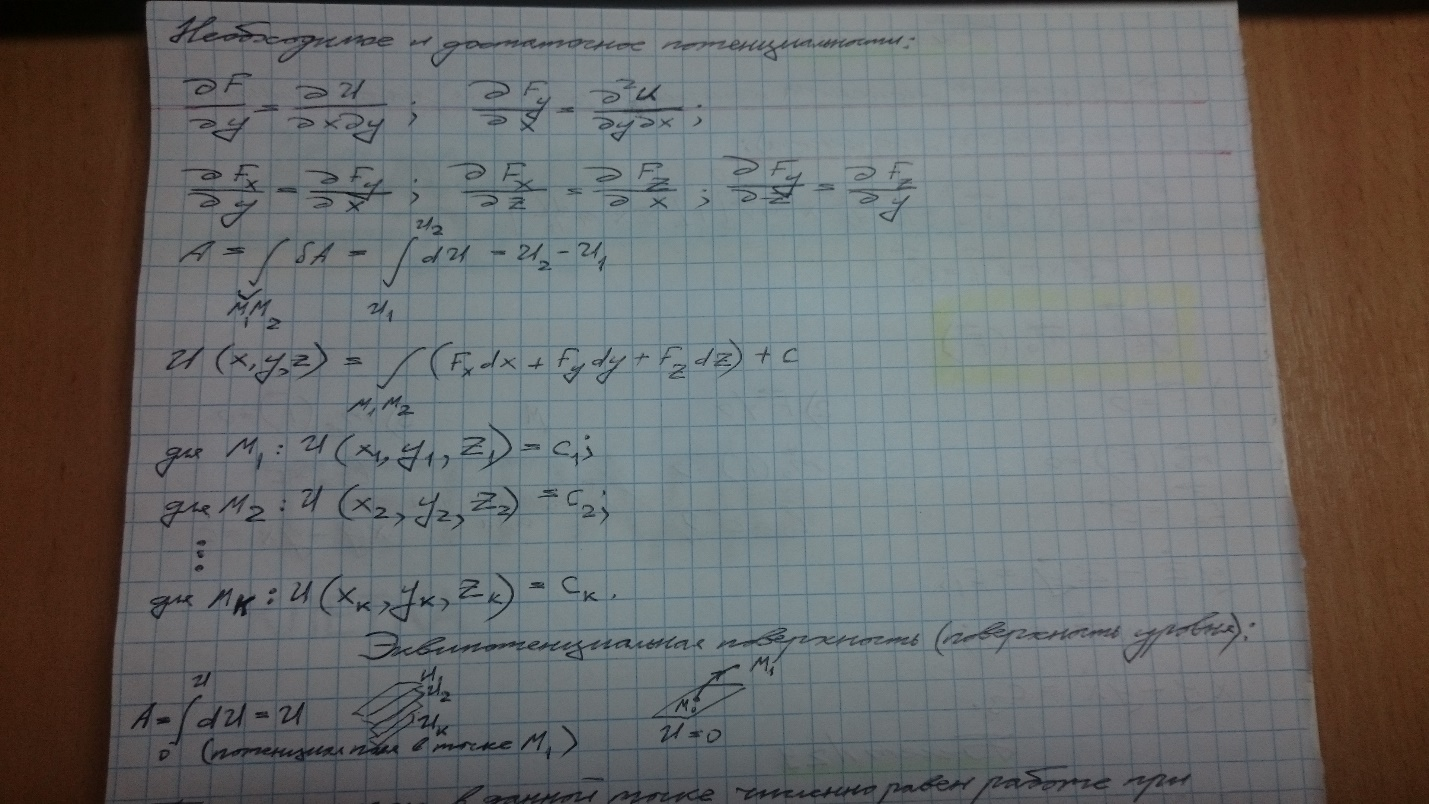 Необходимое и достаточное потенциальности:
∂F/∂y = ∂U/∂x∂y ; ∂Fy/∂x = ∂²U/∂y∂x ;
∂Fx/∂y = ∂Fy/∂x ; ∂Fx/∂z = ∂Fz/∂x ; ∂Fy/∂z = ∂Fz/∂y
A = ∫_{M₁M₂} δA = ∫_{U₁}^{U₂} dU = U₂ - U₁
U (x,y,z) = ∫_{M₁M₂} (Fx dx + Fy dy + Fz dz) + C
для M₁ : U (x₁, y₁, z₁) = C₁;
для M₂ : U (x₂, y₂, z₂) = C₂;
⋮
для Mк : U (xк, yк, zк) = Cк.
Эквипотенциальная поверхность (поверхность уровня):
A = ∫_0^U dU = U
U₁
U₂
Uк
M₁
U = 0
(потенциал поля в точке M₁)
в данной точке численно равен работе при